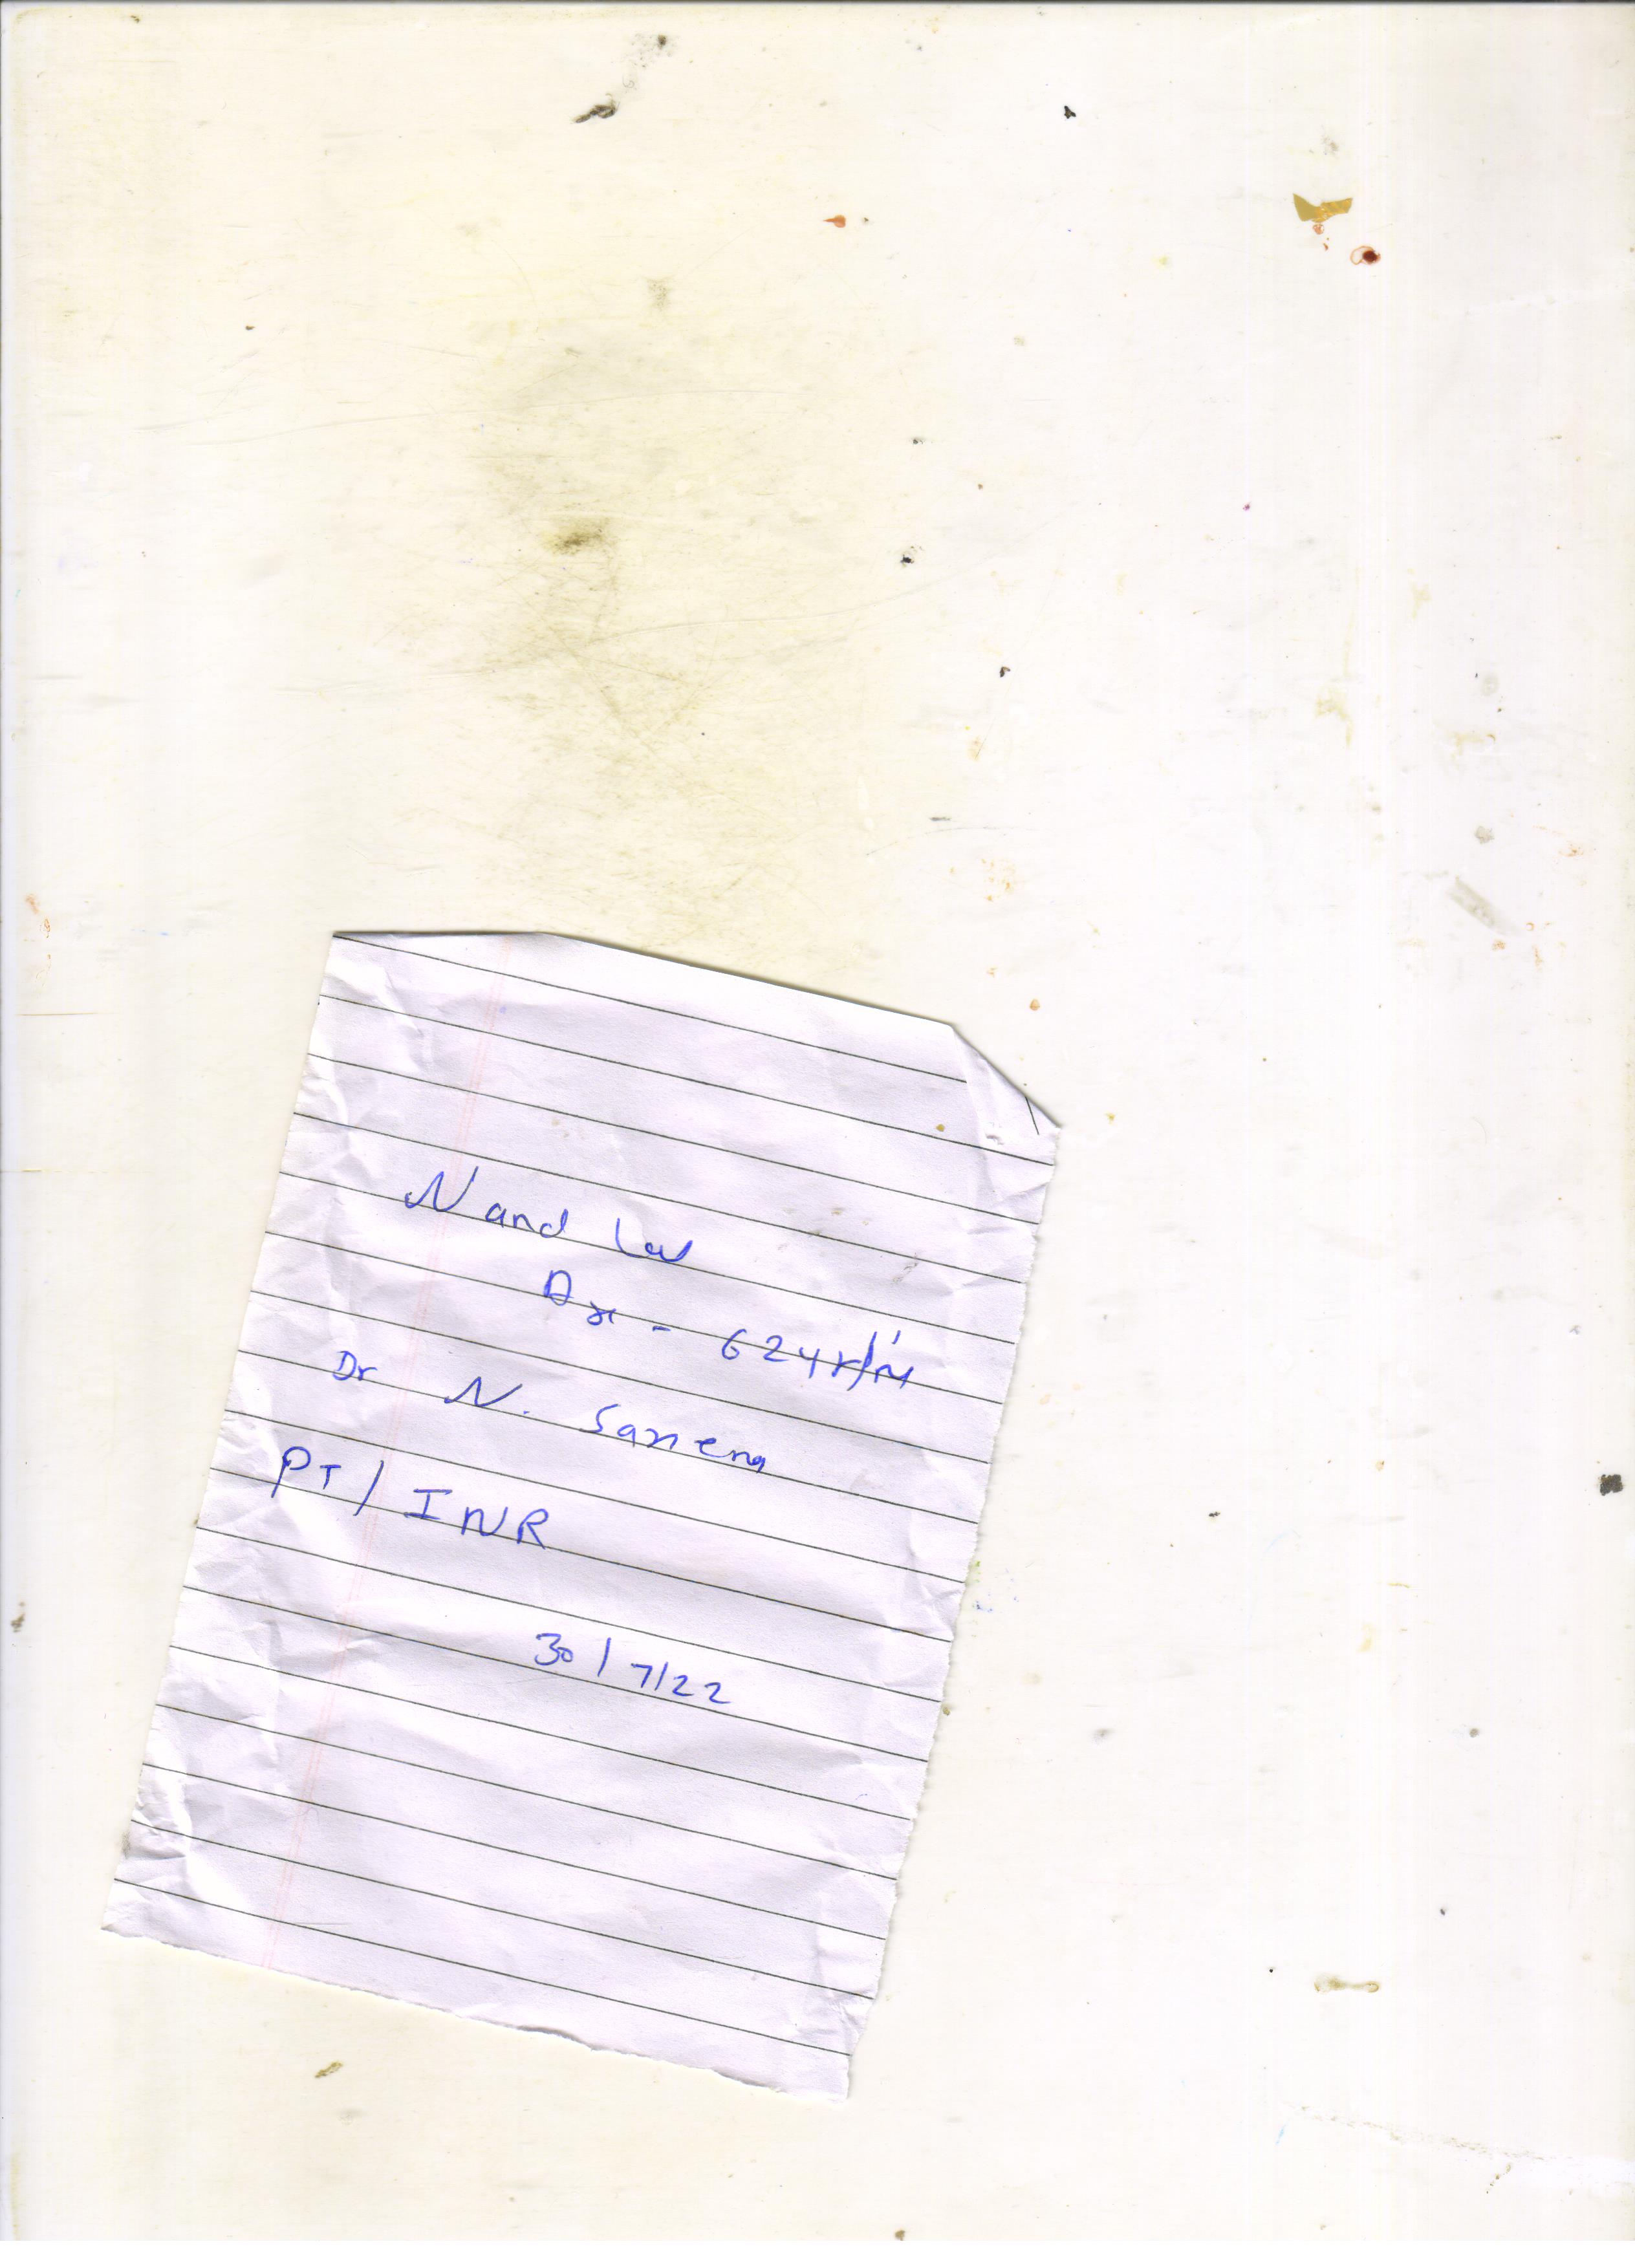 Nand Lal
Age - 62 yr/M
Dr N. Saxena
PT/INR
30/7/22